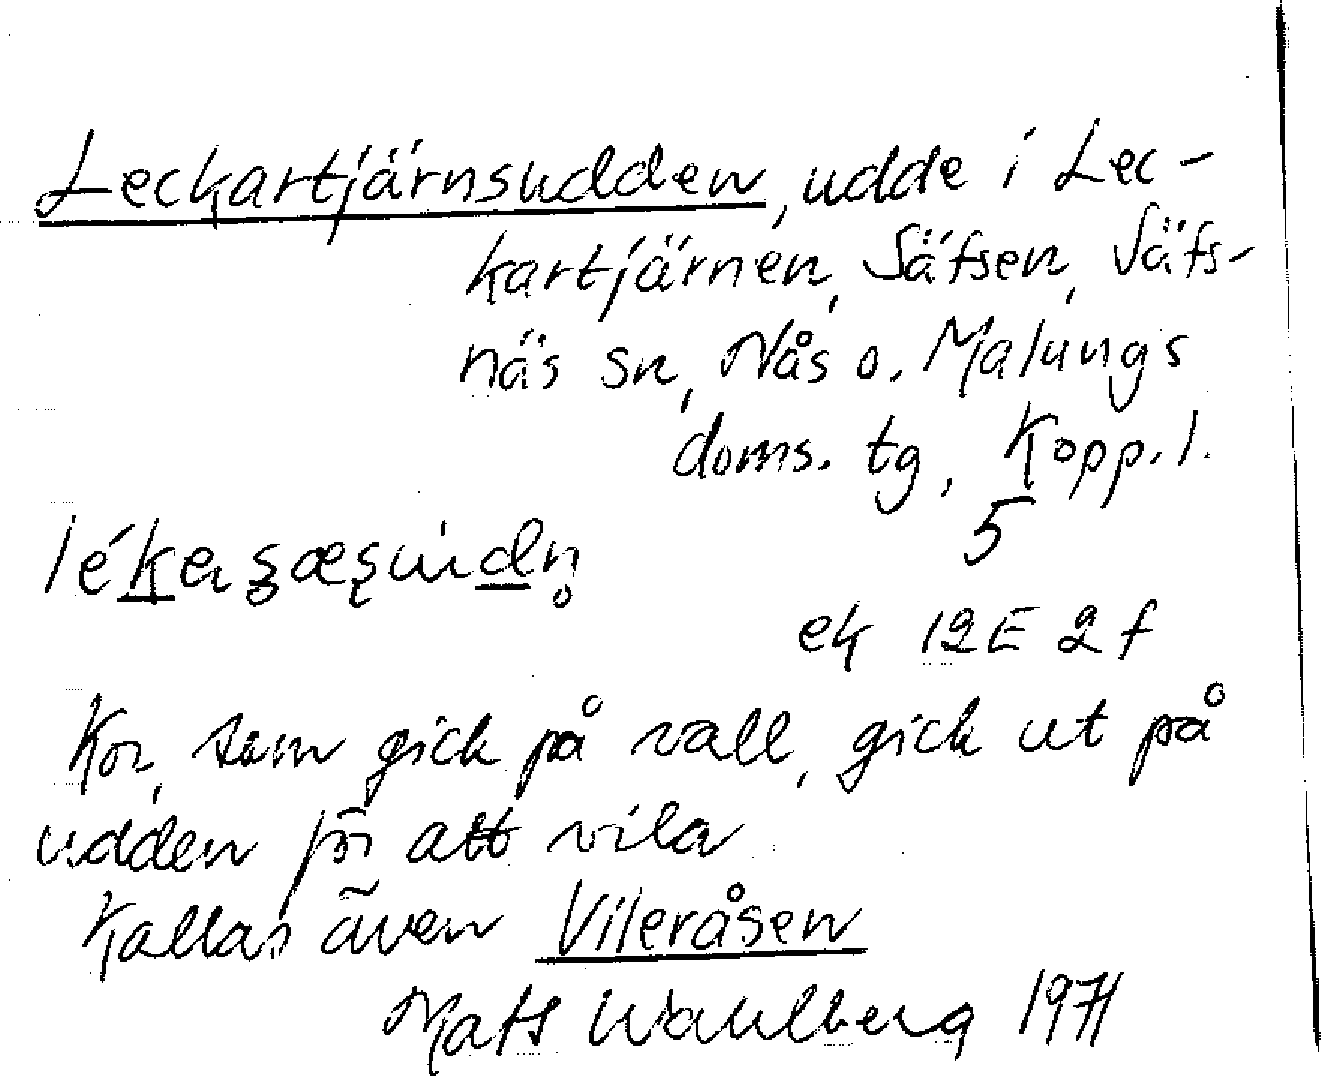 Leckartjärnsudden, udde i Lec-
kartjärnen, Säfsen, Säfs-
näs sn, Nås o. Malungs
doms. tg, Kopp. l.
5
ek 12E 2f
Kor, som gick på vall, gick ut på
udden för att vila
Kallas även Vileråsen
Mats Wahlberg 1971